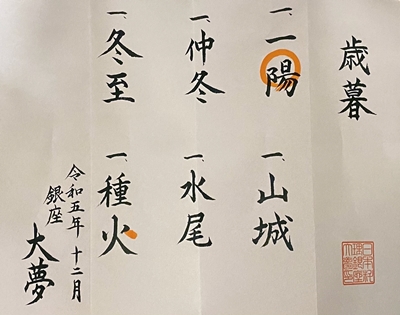 歳暮
一、一陽
一、山城
一、仲冬
一、水尾
一、冬至
一、種火
令和五年 十二月
銀座
大夢